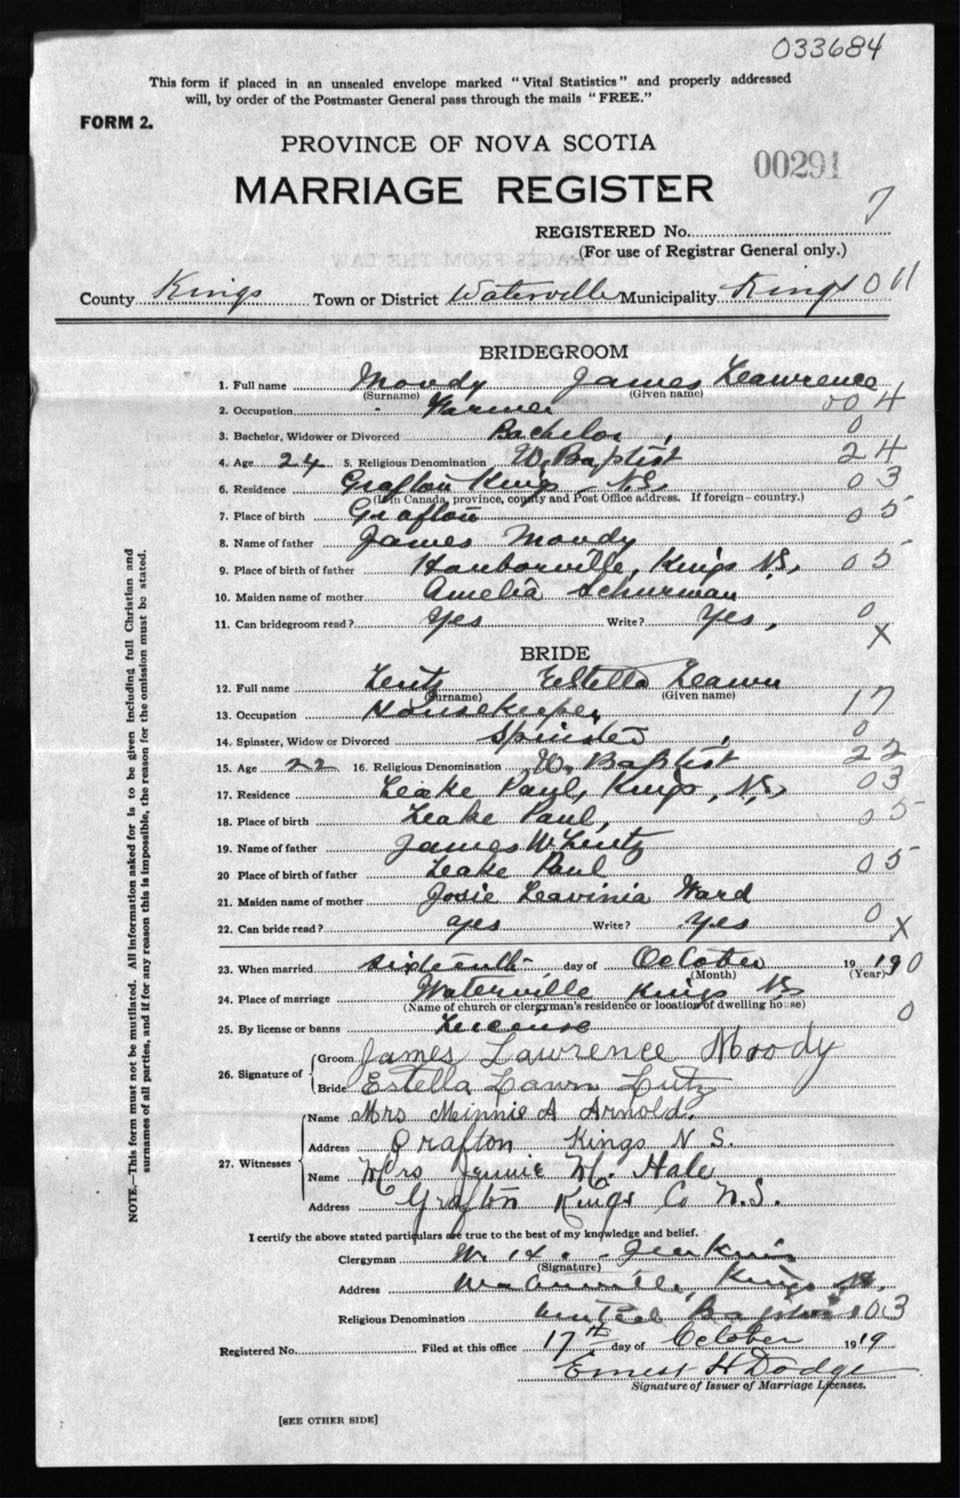 033684
This form if placed in an unsealed envelope marked "Vital Statistics" and properly addressed
will, by order of the Postmaster General pass through the mails "FREE."
FORM 2.
PROVINCE OF NOVA SCOTIA
00291
MARRIAGE REGISTER
7
REGISTERED No.
(For use of Registrar General only.)
County Kings Town or District Waterville Municipality Kings 011
BRIDEGROOM
1. Full name Moody James Leawrence
(Surname) (Given name)
2. Occupation Farmer 004
3. Bachelor, Widower or Divorced Bachelor 0
4. Age 24 5. Religious Denomination U. Baptist 24
6. Residence Grafton Kings N.S. 03
(If in Canada, province, county and Post Office address. If foreign - country.)
7. Place of birth Grafton 05
8. Name of father James Moody
9. Place of birth of father Harborville, Kings N.S. 05
10. Maiden name of mother Amelia Schurman
11. Can bridegroom read? Yes Write? Yes, 0
X
BRIDE
12. Full name Lutz Estella Leawn
(Surname) (Given name)
13. Occupation Housekeeper 17
14. Spinster, Widow or Divorced Spinster 0
15. Age 22 16. Religious Denomination U. Baptist 22
17. Residence Leake Paul, Kings, N.S. 03
18. Place of birth Leake Paul, 05
19. Name of father James W. Lutz
20 Place of birth of father Leake Paul 05
21. Maiden name of mother Josie Leavinia Ward
22. Can bride read? yes Write? yes 0
X
23. When married sixteenth day of October 19 19 0
(Month) (Year)
24. Place of marriage Waterville Kings N.S.
(Name of church or clergyman's residence or location of dwelling house)
0
25. By license or banns License
26. Signature of Groom James Lawrence Moody
Bride Estella Lawn Lutz
27. Witnesses Name Mrs Meinnie A Arnold.
Address Grafton Kings N S.
Name Mrs Jennie M. Hale
Address Grafton Kings Co N.S.
I certify the above stated particulars are true to the best of my knowledge and belief.
Clergyman W. H. Jenkins
(Signature)
Address Kings
Religious Denomination United Baptist 03
Registered No. Filed at this office 17th day of October 1919
Ernest H Dodge
Signature of Issuer of Marriage Licenses.
[SEE OTHER SIDE]
NOTE.—This form must not be mutilated. All information asked for is to be given including full Christian and
surnames of all parties, and if for any reason this is impossible, the reason for the omission must be stated.